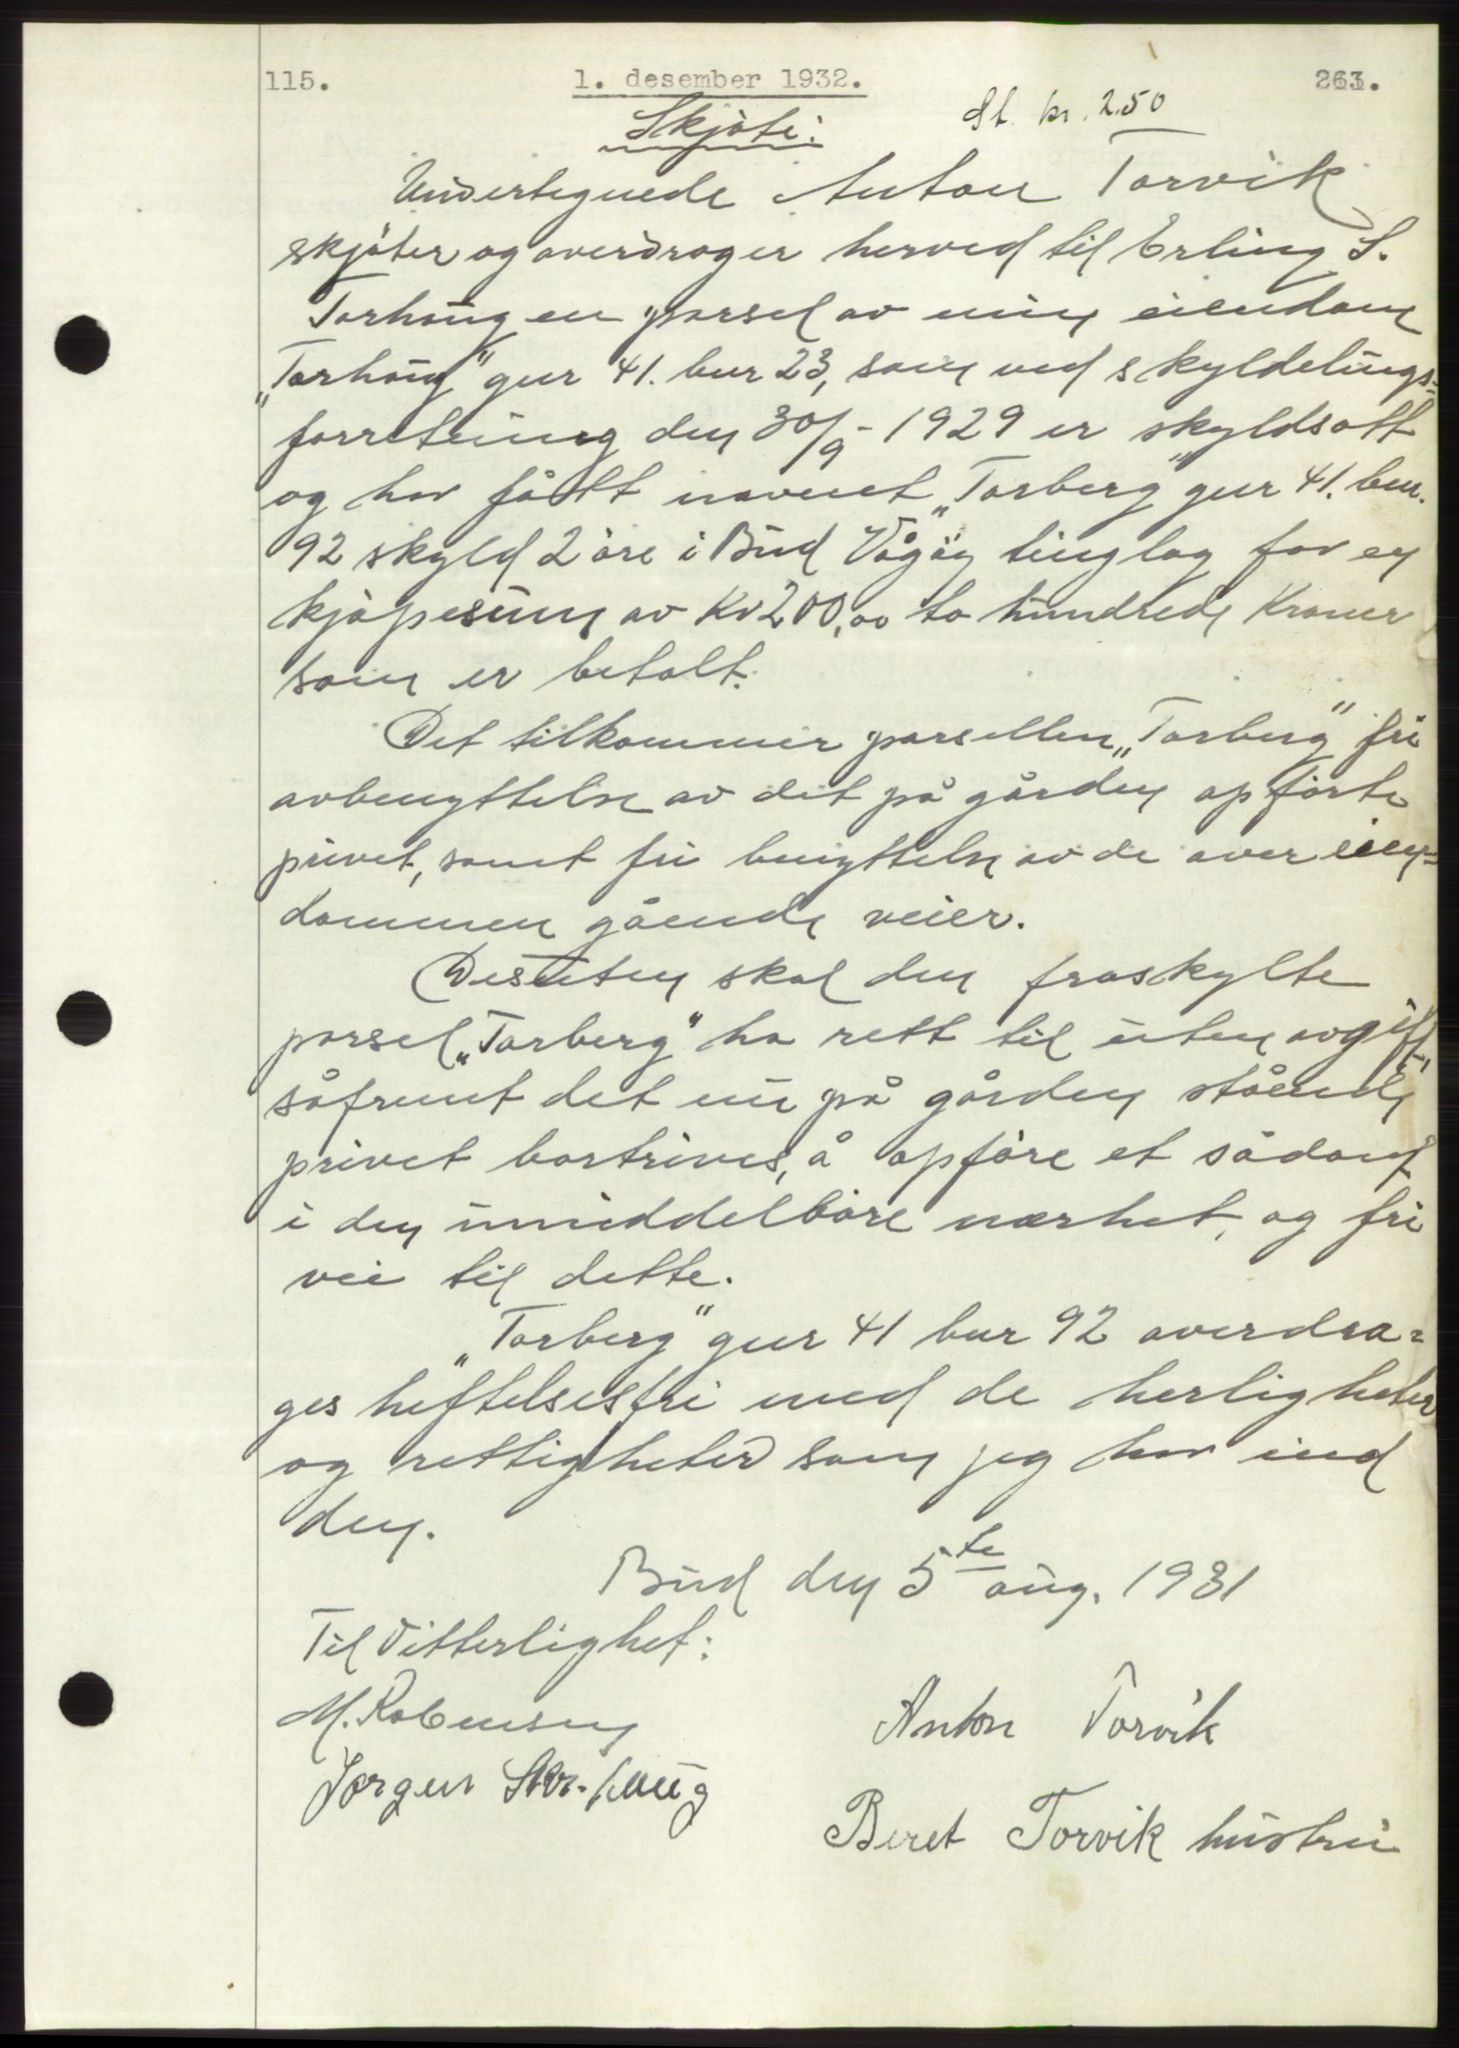 115. 1. desember 1932. 263.
Skjöte: St. kr. 2.50
Undertegnede Anton Torvik
skjöter og overdroger herved til Erling S.
Torhaug en parsel av min eiendom
„Torhaug" gnr 41. bnr 23, som ved skyldelings=
forretning den 30/9 - 1929 er skyldsatt
og har fått navnet „Torberg" gnr 41. bnr.
92 skyld 2 öre i Bud Vågöy tinglag for en
kjöpesum av Kr 200,00 to hundrede Kroner
som er betalt.
Det tilkommer parsellen „Torberg" fri
avbenyttelse av det på gården opförte
privet, samt fri benyttelse av de over eien=
dommen gående veier.
Desuten skal den fraskylte
parsel „Torberg" ha rett til uten avgift,
såfremt det nu på gården stående
privet bortrives, å opföre et sådant
i den umiddelbare nærhet, og fri
vei til dette.
„Torberg" gnr 41 bnr 92 overdra=
ges heftelsesfri med de herligheter
og rettigheter som jeg har ind
den.
Bud den 5te aug. 1931
Til Vitterlighet:
M. Robensen
Anton Torvik
Jörgen haug
Beret Torvik hustru